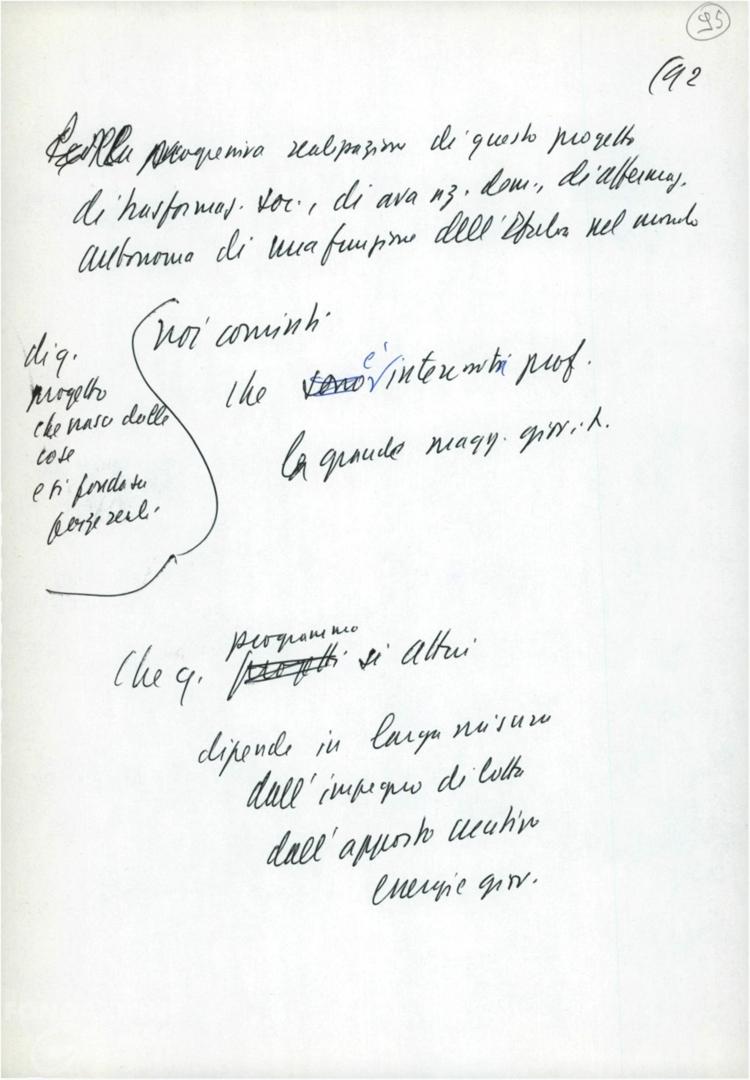 95
(92
Sulla progressiva realizzazione di questo progetto
di trasformaz. soc., di avanz. dem., di affermaz.
autonoma di una funzione dell'Italia nel mondo
noi comunisti
che è interessata prof.
la grande magg. giov. it.
di q.
progetto
che nasce dalle
cose
e si fonda su
forze reali.
Che q. programma si attui
dipende in larga misura
dall'impegno di lotta
dall'apporto creativo
energie giov.